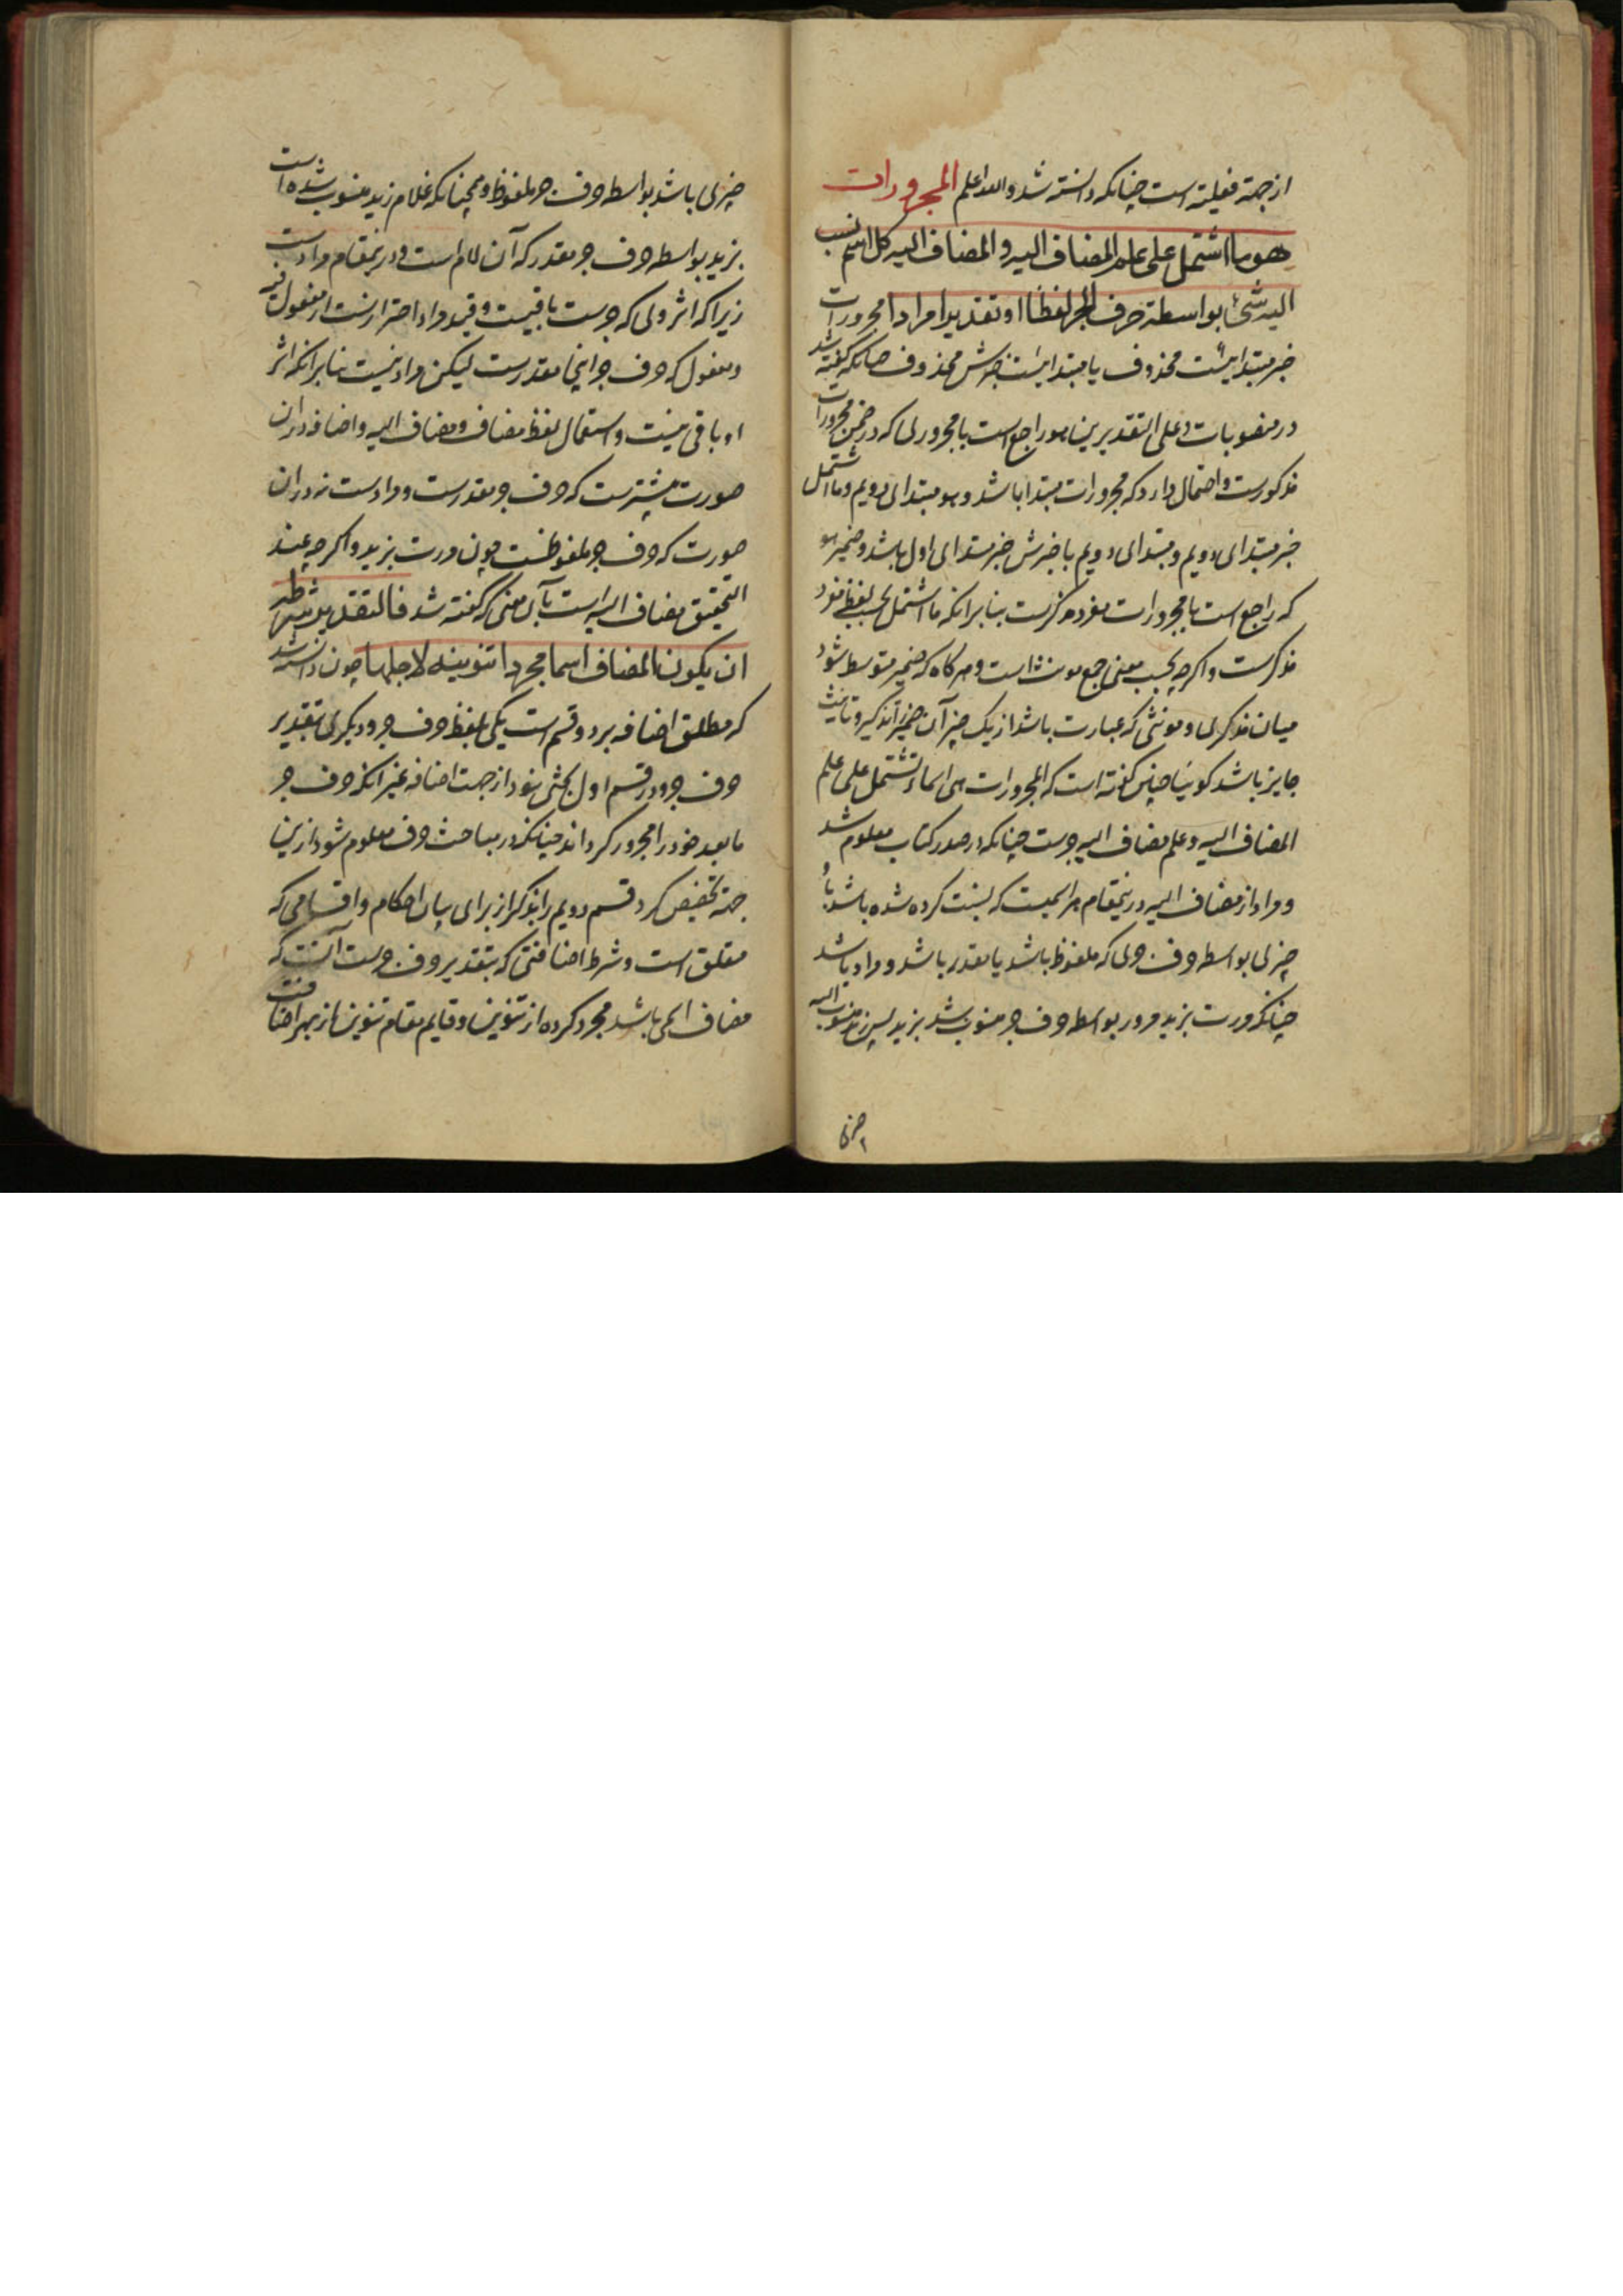 از جهة فعلیته است چنانکه دانسته شد والله اعلم المجرورات
هو ما اشتمل علی علم المضاف الیه و المضاف الیه کل اسم نسب
الیه شیء بواسطة حرف الجر لفظا او تقدیرا مرادا مجرورات
خبر مبتدائیست محذوف یا مبتدائیست خبرش محذوف چنانکه گفته شد
در منصوبات و علی التقدیرین هو راجع است با مجروری که در ضمن مجرورات
مذکورست و احتمال دارد که مجرورات مبتدا باشد و هو مبتدای دویم و ما اشتمل
خبر مبتدای دویم و مبتدای دویم با خبرش خبر مبتدای اول باشد و ضمیر هو
که راجع است با مجرورات مفرد مذکرست بنابر انکه ما اشتمل بحسب لفظ مفرد
مذکرست و اکرچه بحسب معنی جمع مونث است و هرکاه که ضمیر متوسط شود
میان مذکری و مونثی که عبارت باشد از یک چیز آن ضمیر را تذکیر و تانیث
جایز باشد کوئیا چنین کفته است که المجرورات هی اسماء تشتمل علی علم
المضاف الیه و علم مضاف الیه جرست چنانکه در صدر کتاب معلوم شد
و مراد از مضاف الیه درینمقام هر اسمیست که نسبت کرده شده باشد باو
چیزی بواسطه حرف جری که ملفوظ باشد یا مقدر باشد و مراد باشد
چنانکه مررت بزید مرور بواسطه حرف جر منسوب شد بزید پس زید منسوب الیه
چیزی
چیزی باشد بواسطه حرف جر ملفوظ و همچنانکه غلام زید منسوب شده است
بزید بواسطه حرف جر مقدر که آن لام است و درینمقام مرادست
زیرا که اثر وی که جرست باقیست و قید مراد احترازست از مفعول فیه
و مفعول له که حرف جر اینجا مقدرست لیکن مراد نیست بنابر انکه اثر
او باقی نیست و استعمال لفظ مضاف و مضاف الیه و اضافه در ان
صورت بیشترست که حرف جر مقدرست و مرادست نه در ان
صورت که حرف جر ملفوظست چون مررت بزید و اکرچه عند
التحقیق مضاف الیه است بآن معنی که کفته شد فالتقدیر شرطه
ان یکون المضاف اسما مجردا تنوینه لاجلها چون دانسته شد
که مطلق اضافه بر دو قسم است یکی بلفظ حرف جر و دیکری بتقدیر
حرف جر و در قسم اول بحثی نبود از جهت اضافه غیر انکه حرف جر
ما بعد خود را مجرور کرداند چنانکه در مباحث حرف معلوم شود ازین
جهة تخصیص کرد قسم دویم را بذکر از برای بیان احکام و اقسامی که
متعلق است و شرط اضافتی که بتقدیر حرف جرست آنست که
مضاف اسمی باشد مجرد کرده از تنوین و قایم مقام تنوین از بهر اضافت